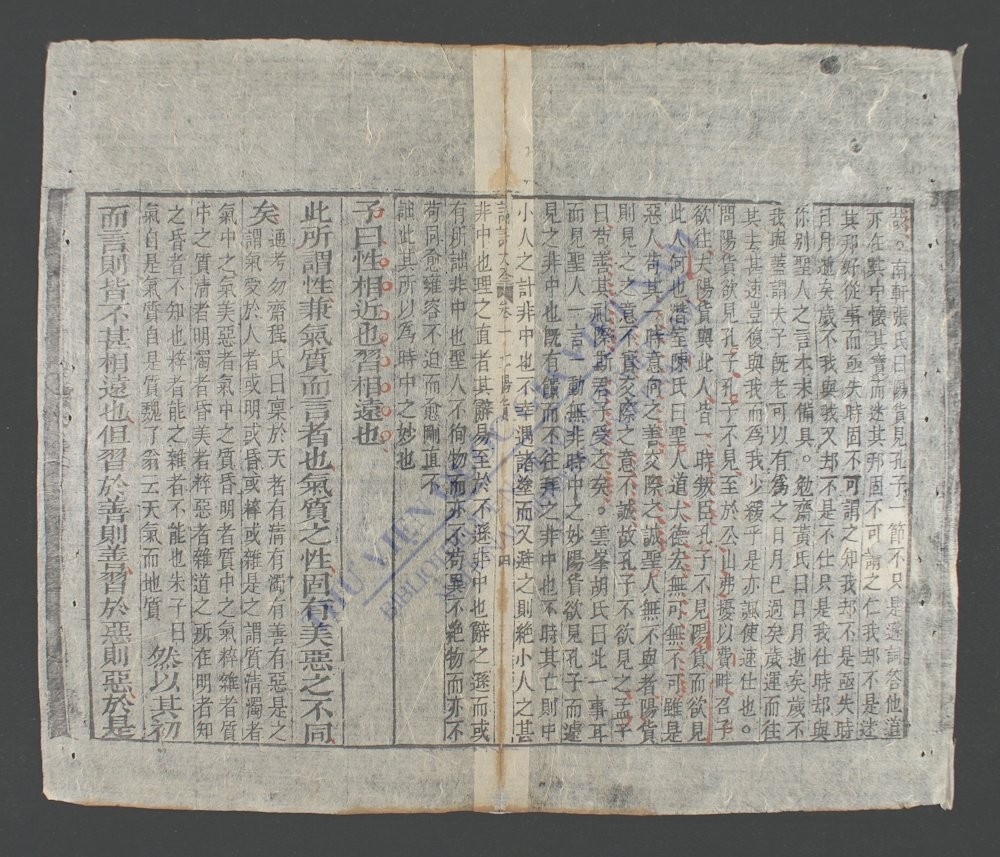 哉。○南軒張氏曰陽貨見孔子一節不只是遜詞答他道
亦在其中懷其寶而迷其邦固不可謂之仁我却不是迷
其邦好從事而亟失時固不可謂之知我却不是亟失時
日月逝矣歲不我與我又却不是不仕只是我仕時却與
你别聖人之言本末備具。勉齋黃氏曰日月逝矣歲不
我與蓋謂夫子旣老可以有為之日月已過矣歲運而往
其去甚速豈復與我而為我少緩乎是亦諷使速仕也。
問陽貨欲見孔子孔子不見至於公山弗擾以費畔召子
欲往夫陽貨與此人皆一時叛臣孔子不見陽貨而欲見
此人何也潛室陳氏曰聖人道大德宏無可無不可雖是
惡人苟其一時意向之善交際之誠聖人無不與者陽貨
則見之之意不實交際之意不誠故孔子不欲見之孟子
曰苟善其禮際斯君子受之矣。雲峯胡氏曰此一事耳
而見聖人一言一動無非時中之妙陽貨欲見孔子而遽
見之非中也既有饋而不往拜之非中也不時其亡則中
小人之計非中也不幸遇諸塗而又避之則絶小人之甚
論語大全 卷十七 陽貨 四
非中也理之直者其辭易至於不遜非中也辭之遜而或
有所詘非中也聖人不徇物而亦不苟異不絶物而亦不
苟同愈雍容不迫而愈剛直不
詘此其所以為時中之妙也
子曰性相近也習相遠也
此所謂性兼氣質而言者也氣質之性固有美惡之不同
矣通考勿齋程氏曰禀於天者有清有濁有善有惡是之
謂氣受於人者或明或昏或粹或雜是之謂質清濁者
氣中之氣美惡者氣中之質昏明者質中之氣粹雜者質
中之質清者明濁者昏美者粹惡者雜道之所在明者知
之昏者不知也粹者能之雜者不能也朱子曰
氣自是氣質自是質魏了翁云天氣而地質然以其初
而言則皆不甚相遠也但習於善則善習於惡則惡於是